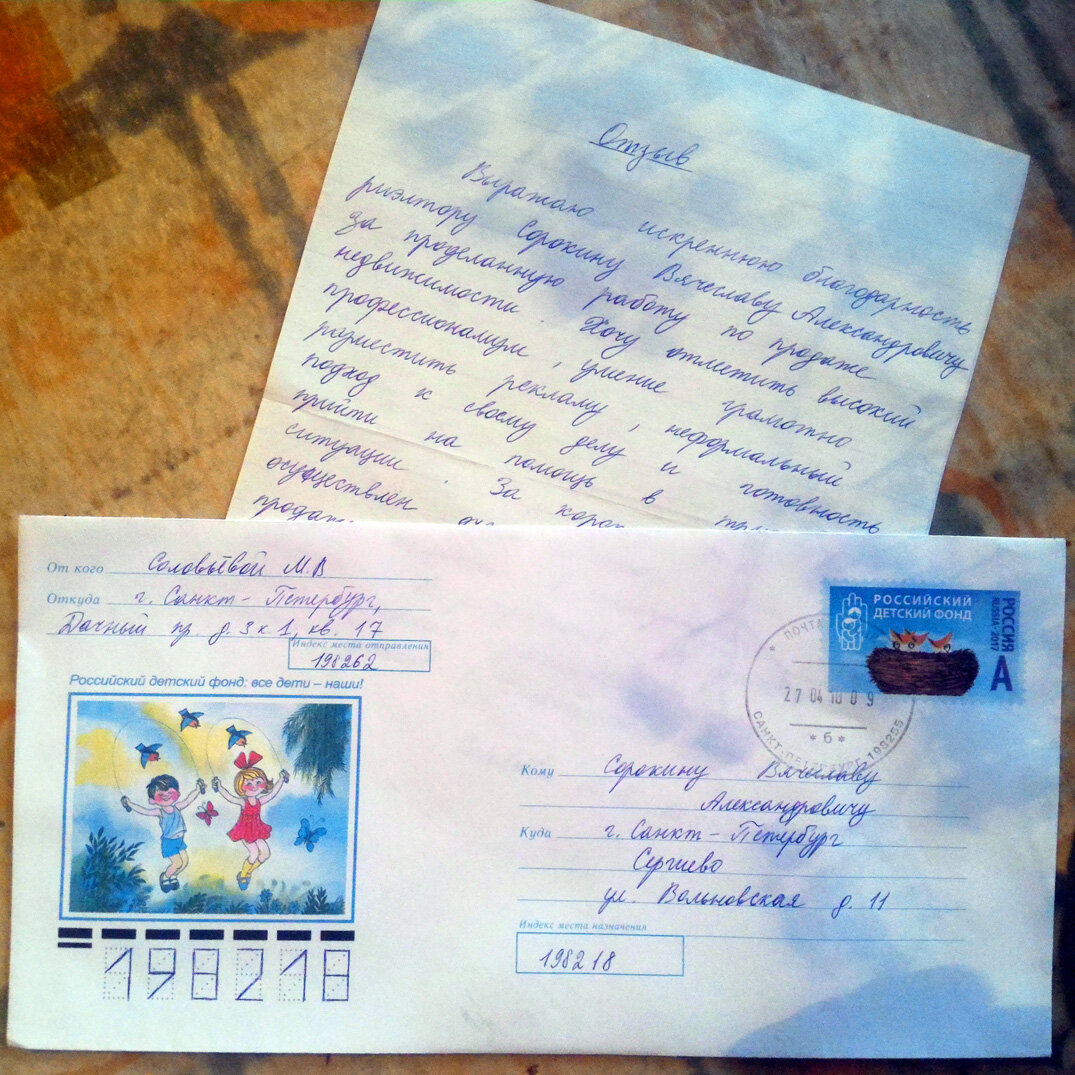 Отзыв
Выражаю искреннюю благодарность
риэлтору Сорокину Вячеславу Александровичу
за проделанную работу по продаже
недвижимости. Хочу отметить высокий
профессионализм, умение грамотно
разместить рекламу, неформальный
подход к своему делу и готовность
прийти на помощь в
ситуации. За
осуществлен
От кого Соловьёвой М.В
Откуда г. Санкт-Петербург,
Дачный пр. д. 3 к. 1, кв. 17
Индекс места отправления
198262
Российский детский фонд: все дети – наши!
198218
РОССИЙСКИЙ
ДЕТСКИЙ ФОНД
РОССИЯ
RUSSIA • 2017
А
ПОЧТА
27 04 18 09
*б*
САНКТ-ПЕТЕРБУРГ 198255
Кому Сорокину Вячеславу
Александровичу
Куда г. Санкт-Петербург
Сергиево
ул. Вольновская д. 11
Индекс места назначения
198218